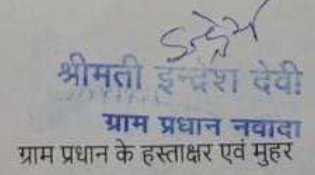 श्रीमती इन्द्रेश देवी
ग्राम प्रधान नवादा
ग्राम प्रधान के हस्ताक्षर एवं मुहर